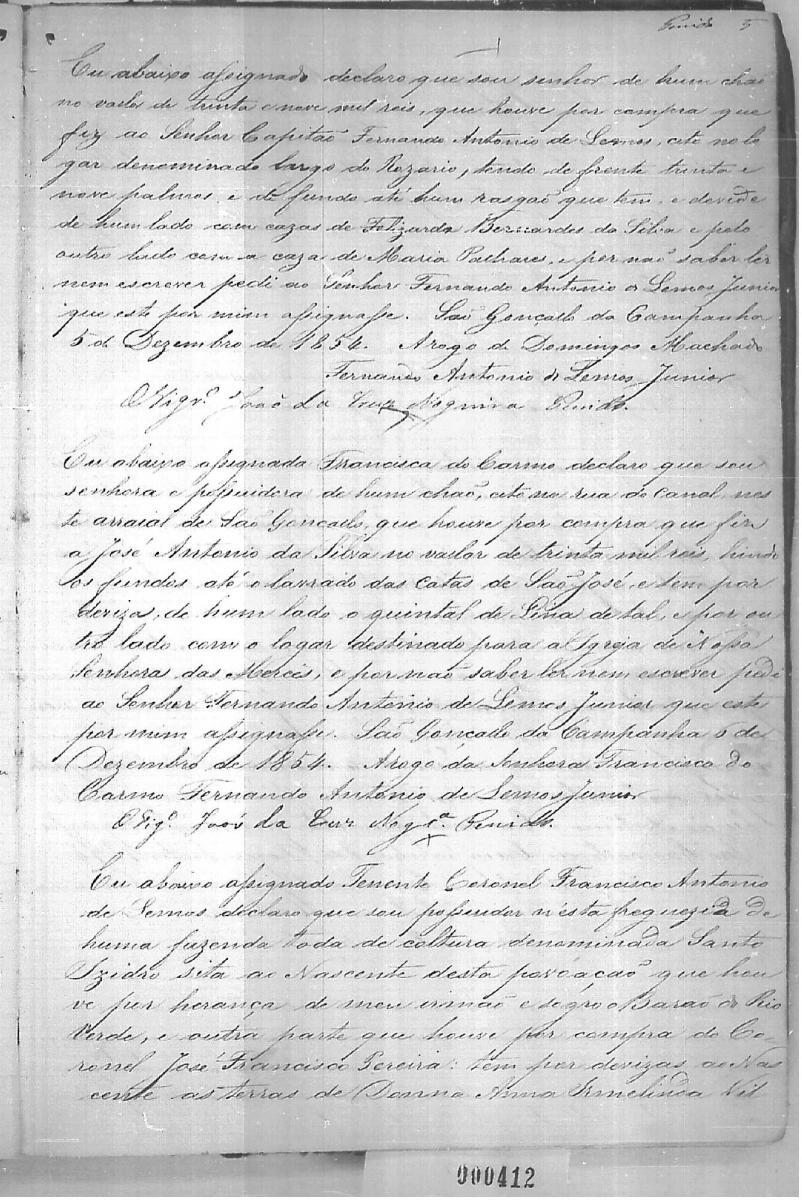 Penido 5
Eu abaixo assignado declaro que sou senhor de hum chaõ
no valor de trinta e nove mil reis, que houve por compra que
fiz ao Senhor Capitaõ Fernando Antonio de Lemos, cito no lo
gar denominado largo do Rozario, tendo de frente trinta e
nove palmos, e de fundo até hum rasgaõ que tem, e devide
de hum lado com cazas de Felizardo Bernardes da Silva e pelo
outro lado com a caza de Maria Palhares, e por naõ saber ler
nem escrever pedi ao Senhor Fernando Antonio de Lemos Junior
que este por mim assignasse. Saõ Gonçallo da Campanha
5 de Dezembro de 1854. Arogo de Domingos Machado
Fernando Antonio de Lemos Junior
O Vigr.º Joaõ da Cruz Nogueira Penido.
Eu abaixo assignada Francisca do Carmo declaro que sou
senhora e possuidora de hum chaõ, cito na rua do Canal, nes
te arraial de Saõ Goncallo, que houve por compra que fiz
a José Antonio da Silva no vallor de trinta mil reis, hindo
os fundos até o lavrado das Catas de Saõ José, e tem por
devizas, de hum lado o quintal de Lina de tal, e por ou
tro lado com o logar destinado para a Igreja de Nossa
Senhora das Mercês, e por naõ saber ler nem escrever pede
ao Senhor Fernando Antonio de Lemos Junior que este
por mim assignasse. Saõ Gonçallo da Campanha 5 de
Dezembro de 1854. Arogo da Senhora Francisca do
Carmo Fernando Antonio de Lemos Junior
O Vig.º Joaõ da Cruz Nog.ra Penido.
Eu abaixo assignado Tenente Coronel Francisco Antonio
de Lemos declaro que sou possuidor n'esta freguezia de
huma fazenda toda de coltura denominada Santo
Izidro sita ao Nascente desta povoaçaõ que hou
ve por herança de meu irmaõ e sogro o Baraõ do Rio
Verde, e outra parte que houve por compra do Co-
ronel José Francisco Pereira: tem por devizas ao Nas
cente as terras de Donna Anna Ermelinda Vil
000412